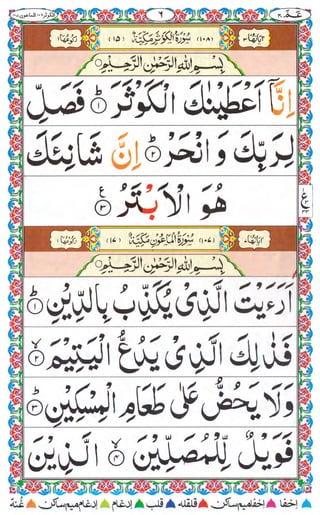 عم ۳۰ ۹ الكوثر ۱۰۸ الماعون ۱۰۷
اٰيَاتُهَا ۳ (۱۰۸) سُوْرَةُ الْكَوْثَرِ مَكِّيَّةٌ (۱۵) رُكُوْعُهَا ۱
بِسْمِ اللّٰهِ الرَّحْمٰنِ الرَّحِيْمِ
اِنَّاۤ اَعْطَيْنٰكَ الْكَوْثَرَ ؕ﴿۱﴾ فَصَلِّ
لِرَبِّكَ وَ انْحَرْ ؕ﴿۲﴾ اِنَّ شَانِئَكَ
هُوَ الْاَبْتَرُ ﴿۳﴾
اٰيَاتُهَا ۷ (۱۰۷) سُوْرَةُ الْمَاعُوْنِ مَكِّيَّةٌ (۱۷) رُكُوْعُهَا ۱
بِسْمِ اللّٰهِ الرَّحْمٰنِ الرَّحِيْمِ
اَرَءَيْتَ الَّذِيْ يُكَذِّبُ بِالدِّيْنِ ؕ﴿۱﴾
فَذٰلِكَ الَّذِيْ يَدُعُّ الْيَتِيْمَ ۙ﴿۲﴾
وَلَا يَحُضُّ عَلٰى طَعَامِ الْمِسْكِيْنِ ؕ﴿۳﴾
فَوَيْلٌ لِّلْمُصَلِّيْنَ ۙ﴿۴﴾ الَّذِيْنَ
اِخفا اِخفا میم ساكن قلقله قلب اِدغام اِدغام میم ساكن غُنّه